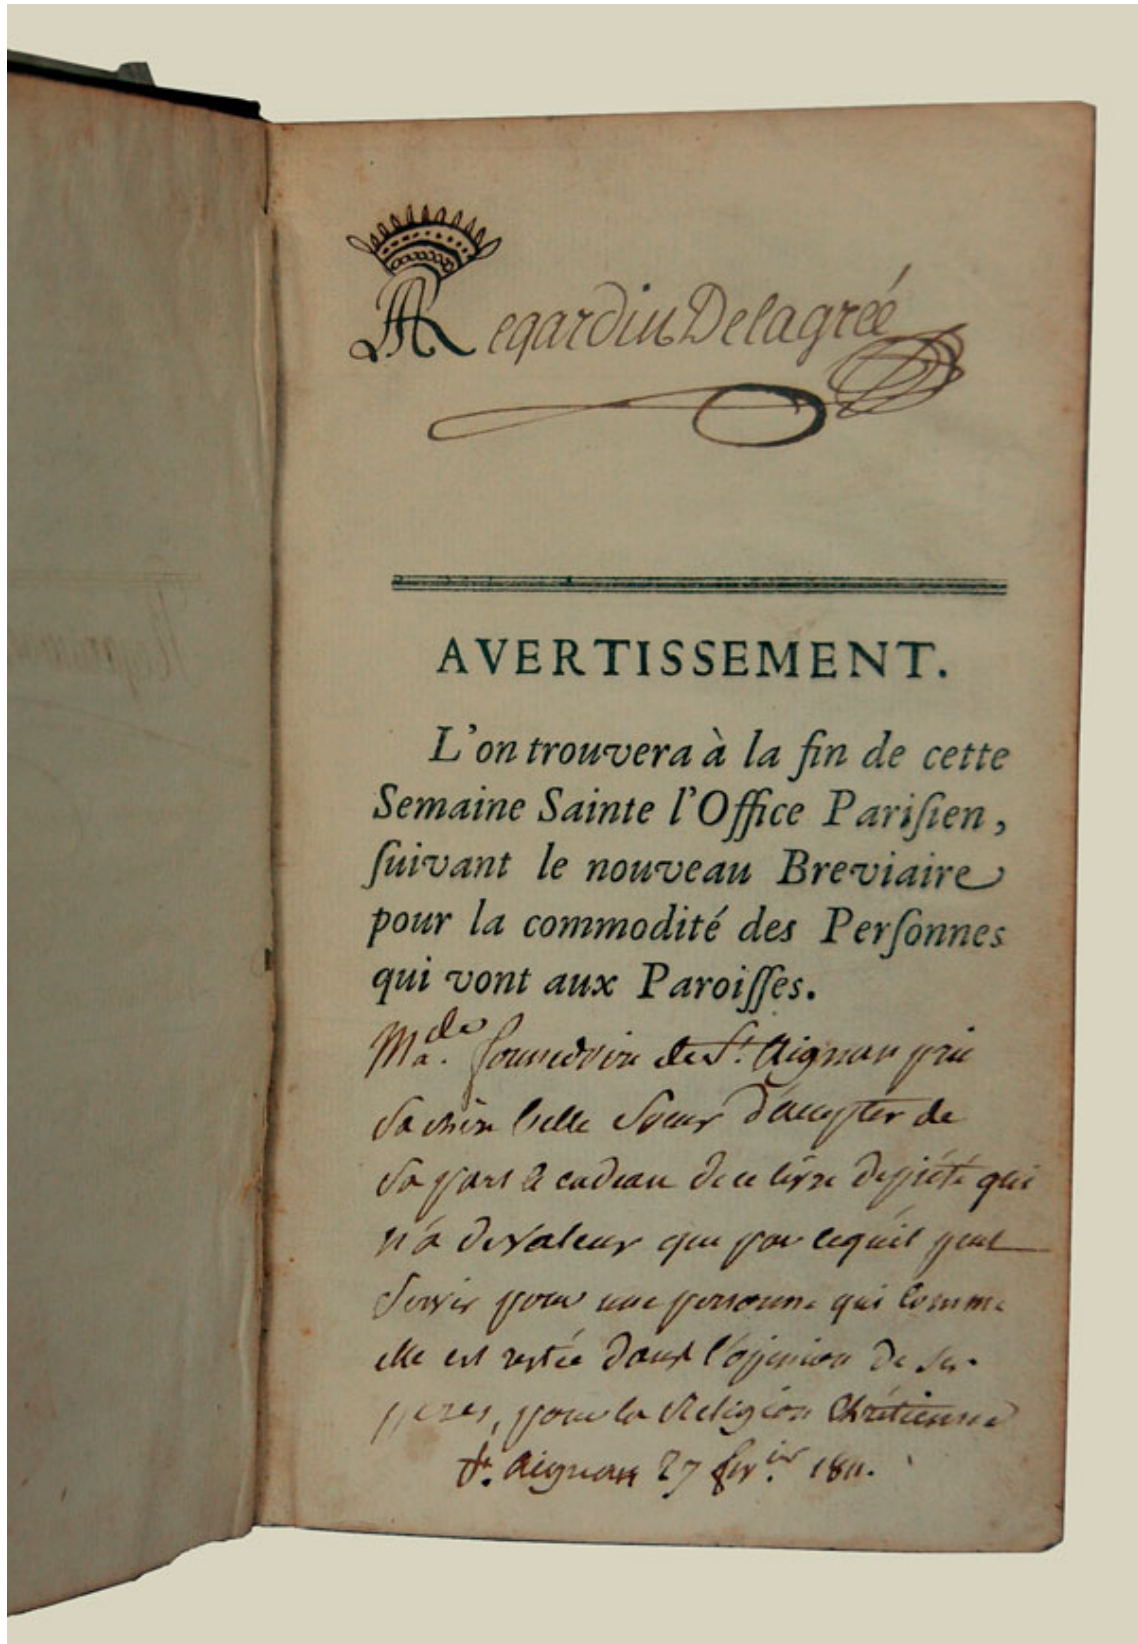 Regardin Delagrée
AVERTISSEMENT.
L'on trouvera à la fin de cette
Semaine Sainte l'Office Pariſien,
ſuivant le nouveau Breviaire
pour la commodité des Perſonnes
qui vont aux Paroiſſes.
Mde. de St. Aignan prie
Sa chere belle Soeur d'accepter de
Sa part le cadeau de ce livre de piété qui
n'a de valeur que par ce qu'il peut
Servir pour une personne qui comme
elle est restée dans l'opinion de ses
peres, pour la Religion Chrétienne
St. Aignan 27 fevier. 1811.